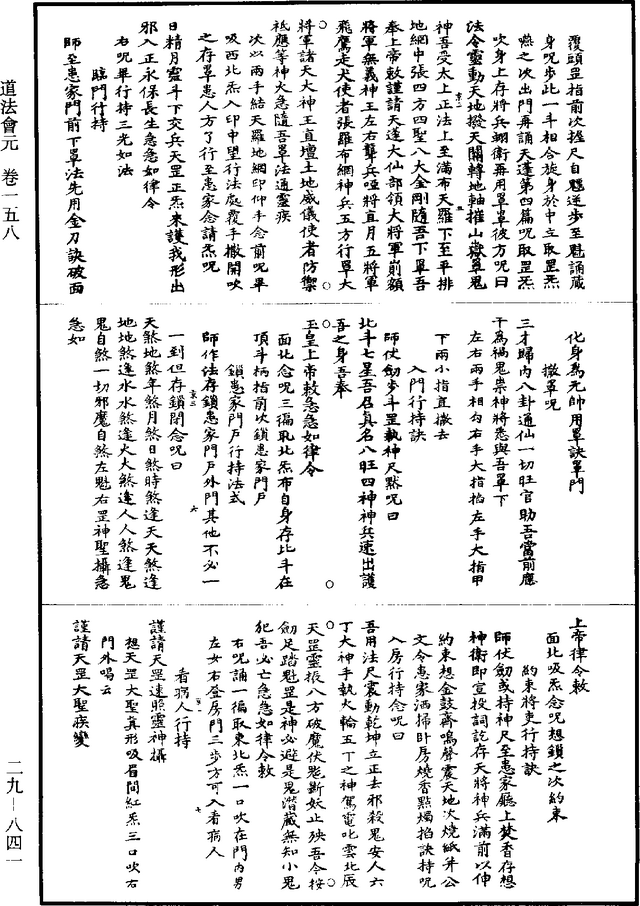 道法會元 卷一五八
二九－八四一
覆頭罡指前次捏尺自魁逆步至魁誦藏
身呪步此一斗相合旋身於中立取罡炁
嚥之次出門再誦天蓬第四篇呪取罡炁
吹身上存將兵蜩衛再用罩罩彼方呪曰
法令靈動天地撥天關轉地軸摧山嶽罩鬼
神吾受太上正法上至滿布天羅下至平排
地網中張四方四聖八大金剛隨吾下罩吾
奉上帝敕謹請天蓬大仙部領大將軍崩額
將軍無義神王左右聾兵啞將直月五將軍
飛鷹走犬使者張羅布網神兵五方行罩大
將軍諸天大神王直壇土地威儀使者防禦
祗應等神火急隨吾罩法通靈疾
次以兩手結天羅地網印仰手念前呪畢
吸西北炁入印中望行法處覆手撒開吹
之存罩患人方了行至患家念請炁呪
日精月靈斗下交兵天罡正炁來護我形出
邪入正永保長生急急如律令
右呪畢行持三光如法
臨門行持
師至患家門前下罩法先用金刀訣破面
化身爲元帥用罩訣罩門
撒罩呪
三才歸內八卦通仙一切旺官助吾當前應
干爲禍鬼祟神將悉與吾罩下
左右兩手相勾右手大指掐左手大指甲
下兩小指直撒去
入門行持訣
師仗劍步斗罡執神尺默呪曰
北斗七星吾召真名八旺四神神兵速出護
吾之身吾奉
玉皇上帝敕急急如律令
面北念呪三徧取北炁布自身存北斗在
頂斗柄指前次鎖患家門戶
鎖患家門戶行持法式
師作法存鎖患家門戶外門其他不必一
一到但存鎖閉念呪曰
天煞地煞年煞月煞日煞時煞逢天天煞逢
地地煞逢水水煞逢火火煞逢人人煞逢鬼
鬼自煞一切邪魔自煞左魁右罡神聖攝急
急如
上帝律令敕
面北吸炁念呪想鎖之次約束
約束將吏行持訣
師仗劍或持神尺至患家廳上焚香存想
神衛即宣投詞訖存天將神兵滿前以伸
約束想金鼓齊鳴聲震天地次燒紙并公
文令患家洒掃卧房燒香點燭掐訣持呪
入房行持念呪曰
吾用法尺震動乾坤立正去邪殺鬼安人六
丁大神手執火輪五丁之神駕電叱雲北辰
天罡靈振八方破魔伏毙斷妖止殃吾今按
劍足踏魁罡是神必避是鬼潛藏無知小鬼
犯吾必亡急急如律令敕
右呪誦一徧取東北炁一口吹在門內男
左女右登房門三步方可入看病人
看病人行持
謹請天罡遠照靈神攝
想天罡大聖真形吸眉間紅炁三口吹右
門外喝云
謹請天罡大聖疾變